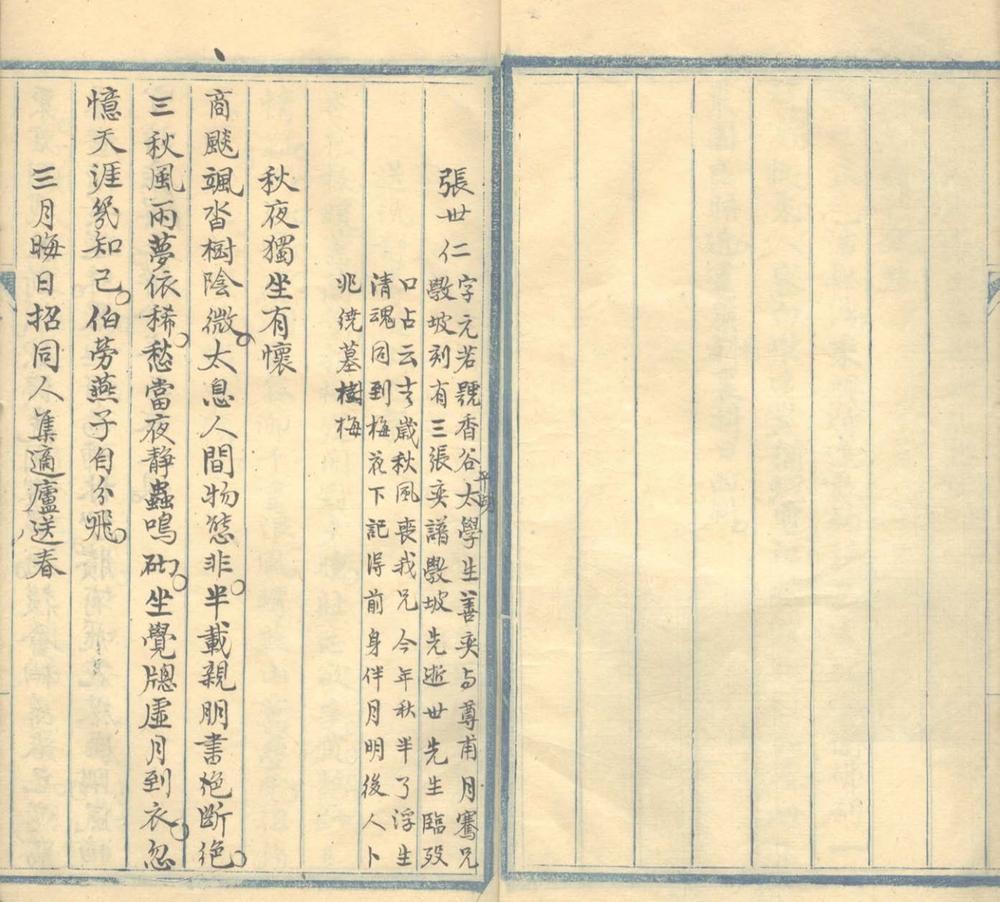 張世仁
字元若號香谷太學生善奕与尊甫月騫兄
斅坡刻有三張奕譜斅坡先逝世先生臨歿
口占云去歲秋風喪我兄今年秋半了浮生
清魂同到梅花下記得前身伴月明後人卜
兆繞墓樹梅
秋夜獨坐有懷
商飈颯沓樹陰微太息人間物態非半載親朋書绝断绝
三秋風雨夢依稀愁當夜静蟲鳴砌坐覺牕虛月到衣忽
憶天涯幾知己伯勞燕子自分飛
三月晦日招同人集適廬送春